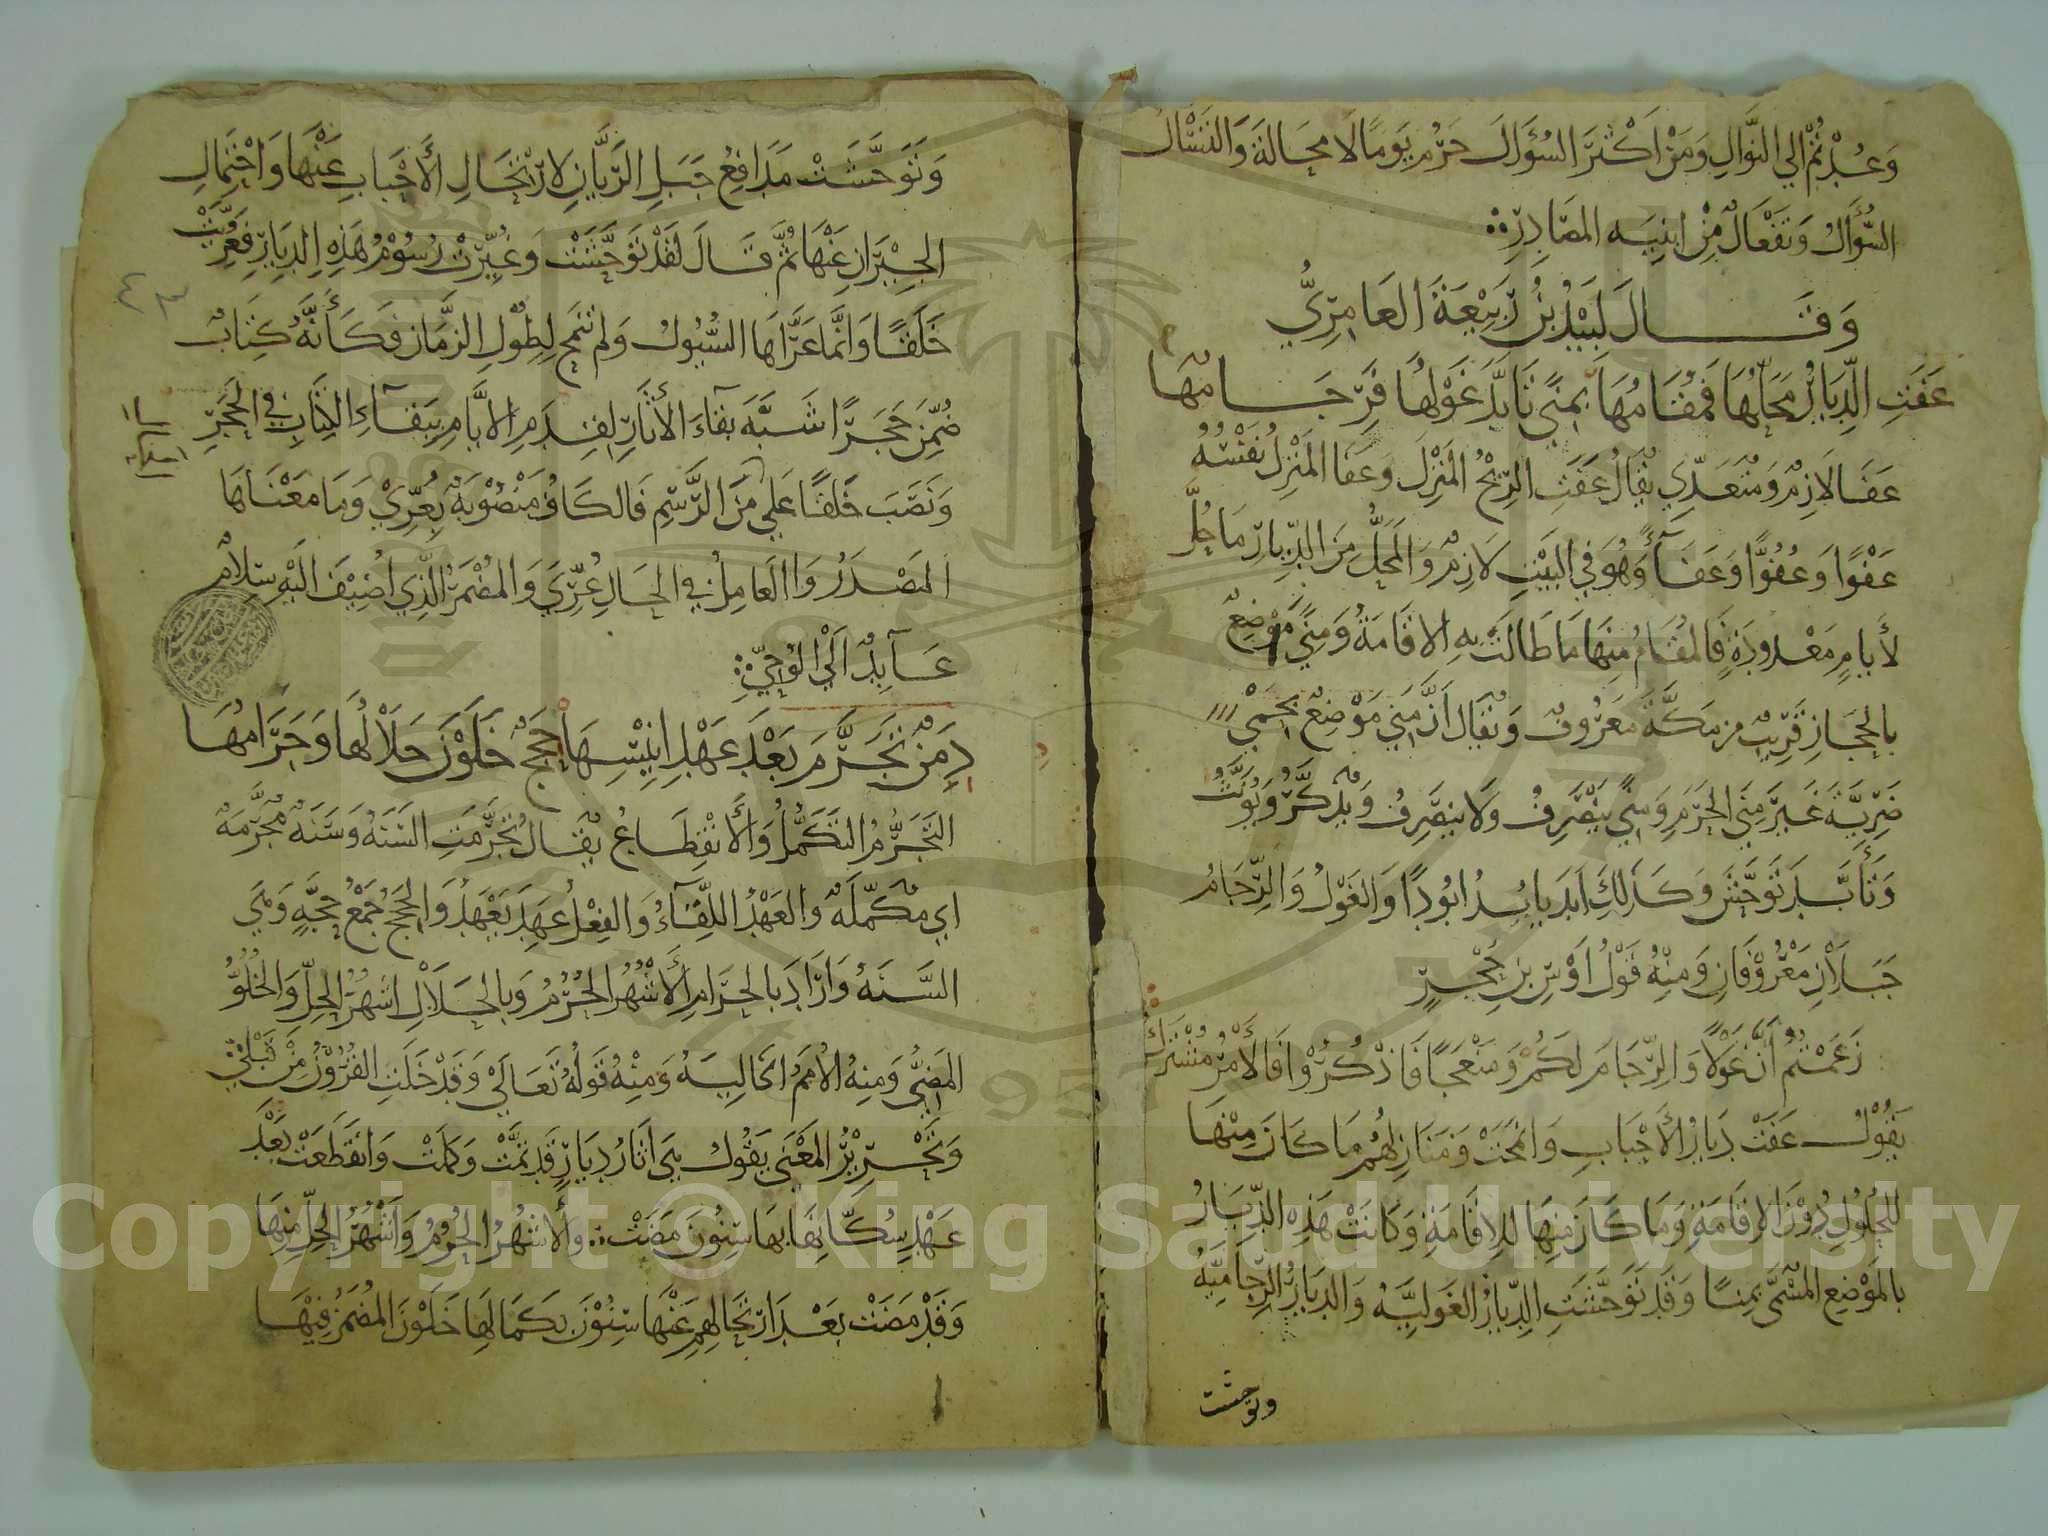 وَعُدْتُمْ الي النَّوَالِ وَمَنْ اَكْثَرَ السُؤَالَ حَرُمَ يَوْمًا لَا محَالَةَ وَالتَسْآلُ
السُّؤَالُ وَتفْعَالٌ مِنْ ابنِيَهِ المصَادِرِ
وَقَالَ لَبَيْدُ بْنُ رَبِيْعَةَ العَامِرِيُّ
عَفَتِ الدِّيَارُ مَحَلُّهَا فَمُقَامُهَا بِمِنًى تَأبَّدَ غَوْلُهَا فَرِجَامُهَا
عَفَا لَازِمٌ وَمُتَعَدِّي يُقَالُ عَفَتِ الرِّيْحُ المَنْزِلَ وَعَفَا المَنْزِلُ نَفْسُهُ
عَفْوًا وَعُفُوًّا وَعَفَآءً وَهُوَ فِي البَيْتِ لَازِمٌ وَالمَحَلُّ مِنَ الدِّيَارِ مَا حُلَّ
لأيامٍ مَعْدودَةٍ فَالمُقَامُ مِنهَا مَا طَالَتْ بهِ الاقَامَةُ وَمِنًي مَوْضِعٌ
بالحِجَازِ قَرِيْبٌ من مَكَّةَ مَعرُوفٌ وَيُقَالُ اَنَّ مِنَي مَوْضِعٌ بحِمَي
ضَرِيَّةَ غَيرَ مِنَي الحَرَمِ وَمِنًي يَنْصَرِفُ وَلَا ينصَرِفُ وَيُذكَّرُ وَيُؤنَّثُ
وَتَأَبَّدَ تَوَحَّشَ وَكَذَلِكَ اَبَدَ يَابُدُ ابُودًا وَالغَوْلُ وَالرِّجَامُ
جَبَلَانِ مَعْرُوفَانِ وَمِنْهُ قَوْلُ اَوْسِ بنِ حُجْرٍ
زَعَمْتُمُ اَنَّ غَوْلًا وَالرِّجَامَ لَكُمْ وَمَنْعجًا فَاذْكُرُوْا فَالأَمْرُ مُشْتَرَكُ
يَقُوْلُ عَفَتْ دِيَارُ الأَحْبَابِ وَانمَحَتْ وَمَنَازِلُهُمْ مَا كَانَ مِنْهَا
للحُلُولِ دُوْنَ الاِقَامَةِ وَمَا كَانَ مِنهَا لِلاِقَامَةِ وَكَانَتْ هَذِهِ الدِّيَارُ
بالمَوْضِعِ المُسَمَّى بمِنًا وَقَد تَوَحَّشَتِ الدِّيَارُ الغَولِيَّهُ وَالدِّيَارُ الرِّجَامِيَّهُ
وتوحشت
وَتَوَحَّشَتْ مَدَافِعُ جَبَلِ الرَّيَّانِ لِارْتحَالِ الأَحْبَابِ عَنْهَا وَاحْتِمَالِ
الجِيْرَانِ عَنْهَا ثُمَّ قَالَ لَقَدْ تَوَحَّشَتْ وَغُيِّرَتْ رُسُوْمُ هَذِهِ الدِيَارِ فَعُرِّيَتْ
خَلَقًا وَانَّمَا عَرَّاهَا السُّيُولُ وَلم تَنمَحِ لِطُوْلِ الزَّمَانِ فَكَأَنَّهُ كِتَابٌ
ضُمِّنَ حَجَرًا شَبَّهَ بقآءَ الأثَارِ لِقِدَمِ الايَّامِ بِبَقَآءِ الكِتَابِ فِي الحَجَرِ
وَنَصَبَ خَلَقًا عَلَي مِنَ الرَّسْمِ فَالكَافُ مَنْصُوْبَةٌ بِعُرِّيَ وَمَا مَعْنَاهَا
المَصْدَرُ وَالعَامِلُ فِي الحَالِ عُرِّيَ وَالمُضْمَرُ الَّذِي اُضِيْفَ الَيْهِ سِلَامٌ
عَآيِدٌ الَي الوُحِيِّ
دِمَنٌ تَجَرَّمَ بَعْدَ عَهْدِ انِيْسِهَا حِجَجٌ خَلَوْنَ حَلَالُهَا وَحَرَامُهَا
التَجَرُّمُ التَكَمُّلُ وَالأنْقِطَاعُ يُقَالُ تَجَرَّمَتِ السَنَةُ وَسَنَةٌ مُجَرَّمَةٌ
اي مُكَمَّلَهٌ وَالعَهْدُ اللِّقَآءُ وَالفِعْلُ عَهِدَ يَعْهَدُ وَالحِجَجُ جَمْعُ حِجَّهٍ وَهِيَ
السَّنَهُ وَارَادَ بالحَرَامِ الأَشْهُرَ الحُرُمُ وَبِالحَلَالِ اَشْهُرَ الحِلِّ وَالخُلُوُّ
المُضِيُّ وَمِنهُ الاُمَمُ الخَالِيَهُ وَمِنْهُ قَوْلُهُ تَعَالَي وَقَدْ خَلَتِ القُرُوْنُ مِنْ قَبْلِيْ
وَتَحْرِيْرُ المَعْنَي يَقُوْلُ هِيَ اَثَارُ دِيَارٍ قَدْ تَمَّتْ وَكَمَلَتْ وَانْقَطَعَتْ بَعْدَ
عَهْدِ سُكَّانِهَا بِهَا سِنُوْنَ مَضَتْ وَالأَشْهُرُ الحُرُمُ وَاَشْهُرُ الحِلِّ مِنهَا
وَقَدْ مَضَتْ بَعْدَ ارْتِحَالِهِمْ عَنْهَا سِنُوْنَ بكَمَالِهَا خَلَوْنَ المُضْمَرُ فِيْهَا
٤٣
Copyright © King Saud University
1957